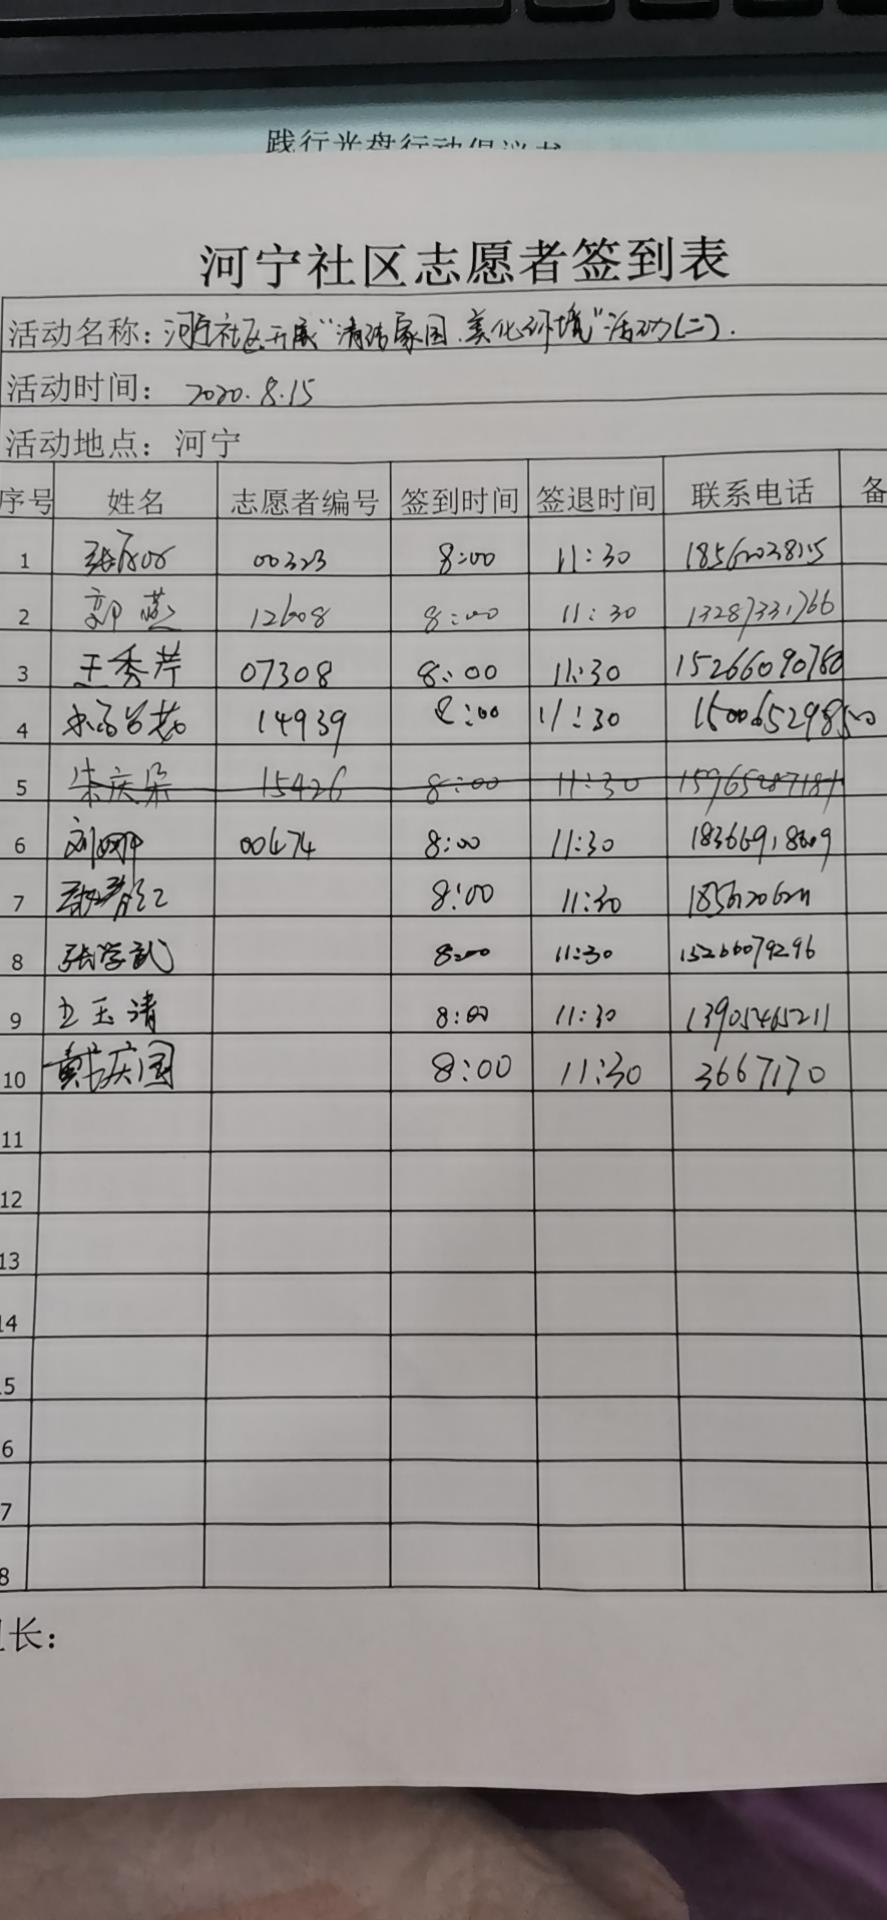 践行光盘行动倡议书
河宁社区志愿者签到表
活动名称：河宁社区开展“清洁家园、美化环境”活动(二).
活动时间： 2020.8.15
活动地点：河宁
序号 姓名 志愿者编号 签到时间 签退时间 联系电话 备
1 00323 8:00 11:30
2 郭燕 12608 8:00 11:30 13287331766
3 王秀芹 07308 8:00 11:30 15266090760
4 14939 8:00 11:30
5 朱庆朵 15426 8:00 11:30
6 00474 8:00 11:30
7 8:00 11:30
8 张学武 8:00 11:30 15266079296
9 王玉清 8:00 11:30 13905465211
10 黄庆国 8:00 11:30 3667170
11
12
13
14
5
6
7
8
长：